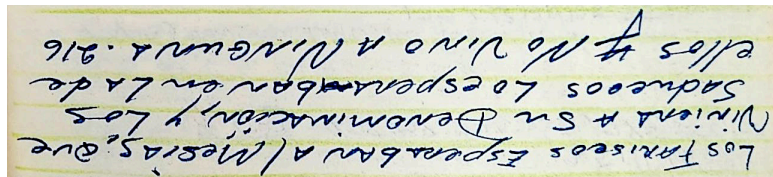 Los FARiseos EspeRaban Al MesiAs, QVE
Viniera A Su DenominAcion, y Los
Saduceos Lo espeRaban en La de
ellos y No Vino A NiNGuna. 216